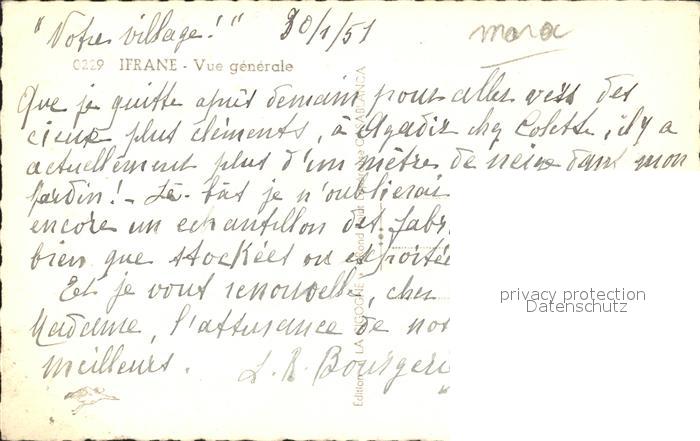 "Notre village!" 30/1/51
maroc
0229 IFRANE - Vue générale
Que je quitte après demain pour aller vers des
cieux plus cléments, à Agadir chez Colette, il y a
actuellement plus d'un mètre de neige dans mon
jardin! - Là-bas je n'oublierai
encore un echantillon des fabr
bien que stockées ou exportée
Et je vous renouvelle, cher
Madame, l'assurance de nos
meilleurs.
L. R. Bourgeri
Edition LA CIGOGNE CASABLANCA
privacy protection
Datenschutz